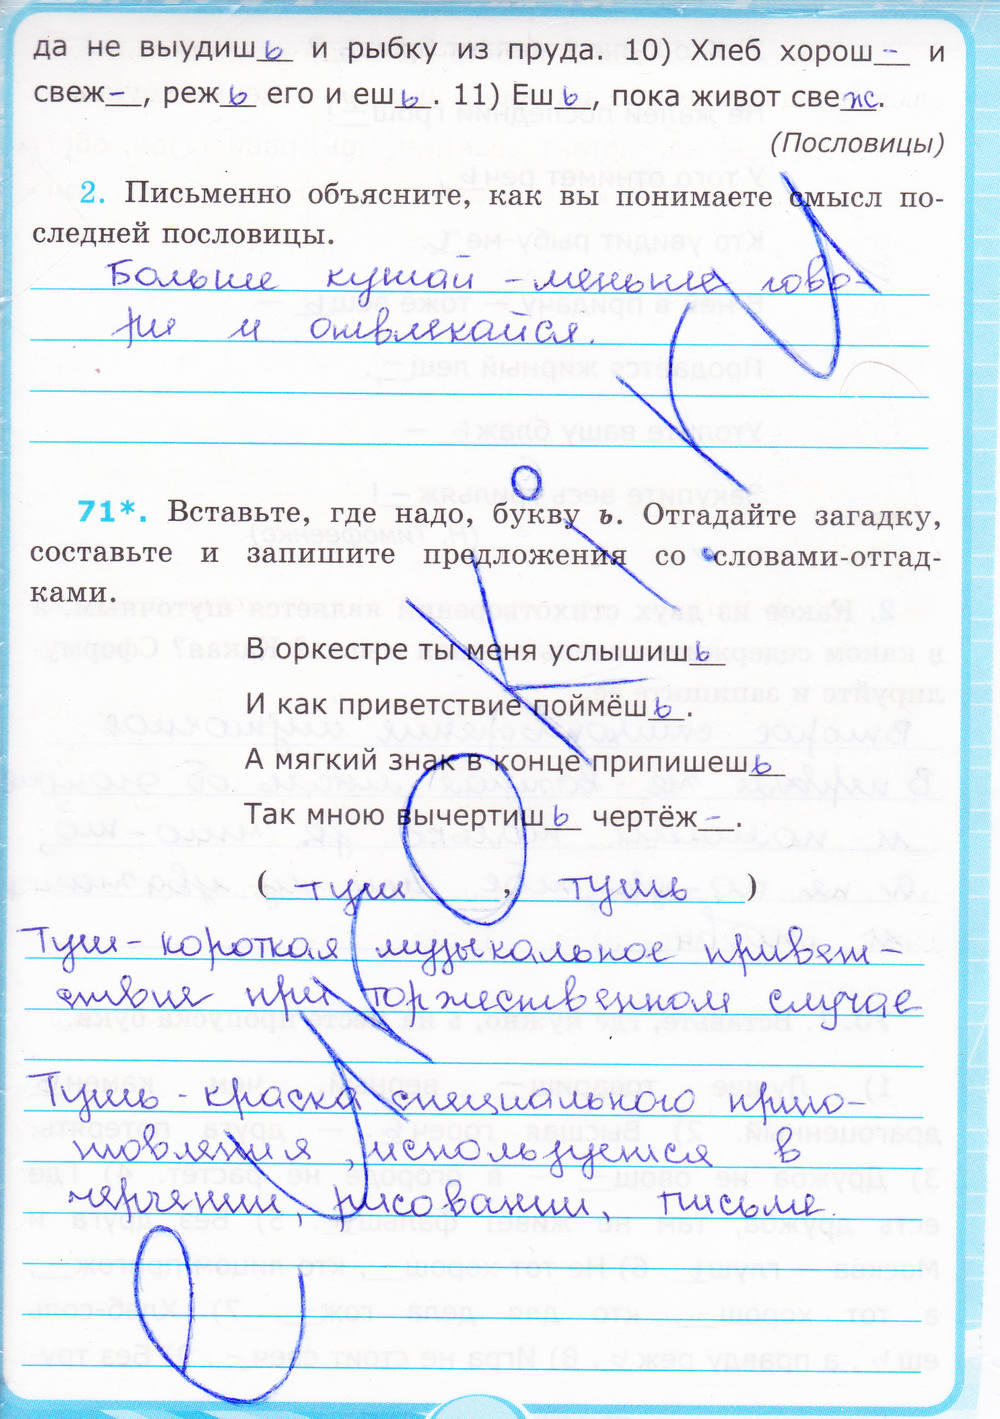 да не выудишь и рыбку из пруда. 10) Хлеб хорош- и
свеж-, режь его и ешь. 11) Ешь, пока живот свеж.
(Пословицы)
2. Письменно объясните, как вы понимаете смысл по-
следней пословицы.
Больше кушай - меньше гово-
ри и отвлекайся.
71*. Вставьте, где надо, букву ь. Отгадайте загадку,
составьте и запишите предложения со словами-отгад-
ками.
В оркестре ты меня услышишь
И как приветствие поймёшь.
А мягкий знак в конце припишешь
Так мною вычертишь чертёж-.
( туш , тушь )
Туш - короткая музыкальное приветст-
ствие при торжественном случае
Тушь - краска специального приго-
товления, используется в
черчении, рисовании, письме.